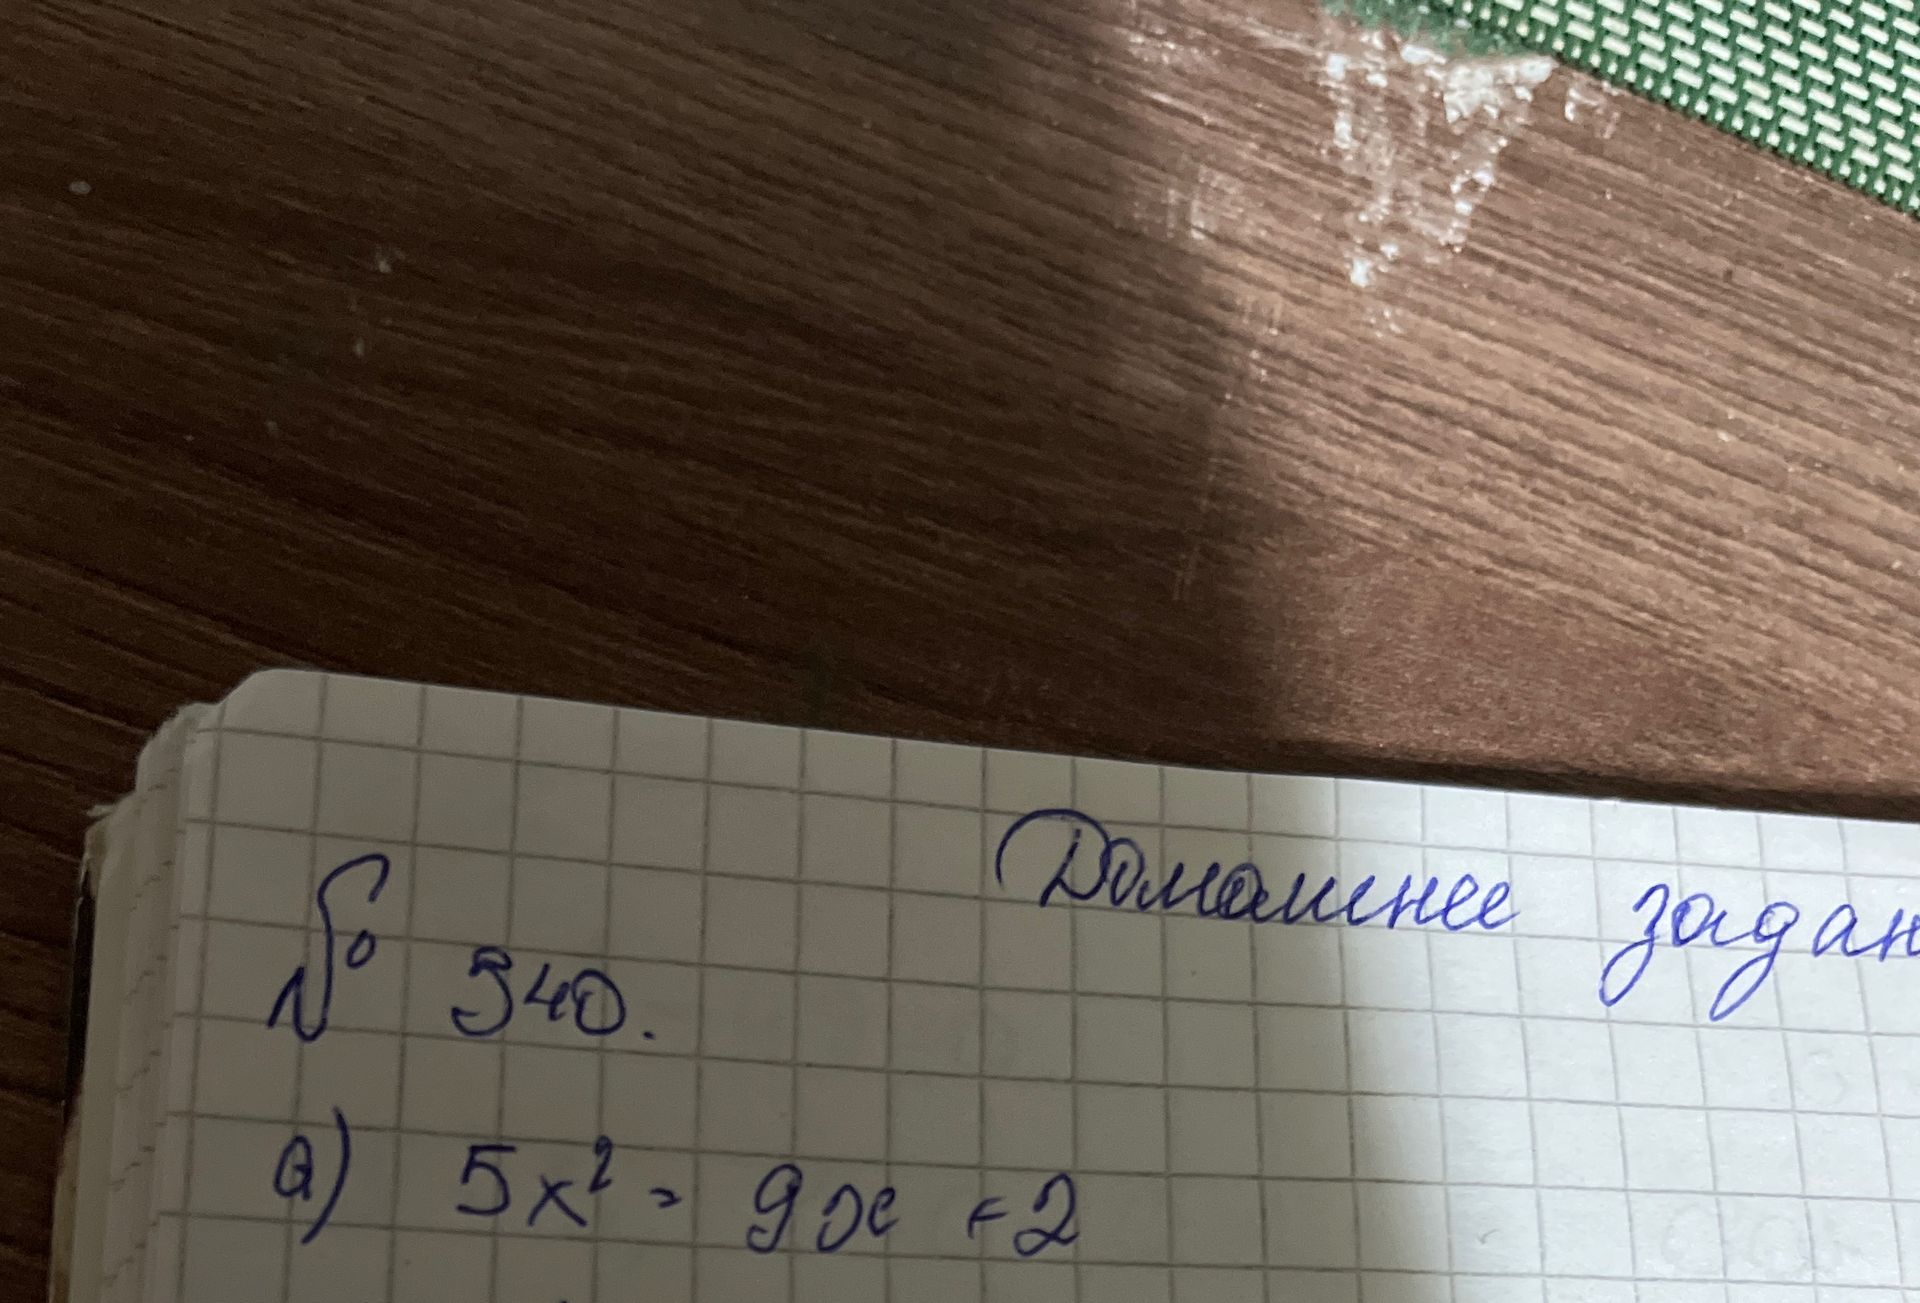 Домашнее задан
№ 540.
а) 5x² = 9x + 2